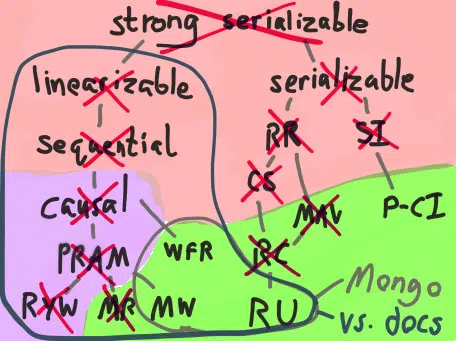 strong serializable
linearizable serializable
sequential RR SI
causal CS P-CI
PRAM WFR RC MAV
RYW MR MW RU Mongo
vs. docs